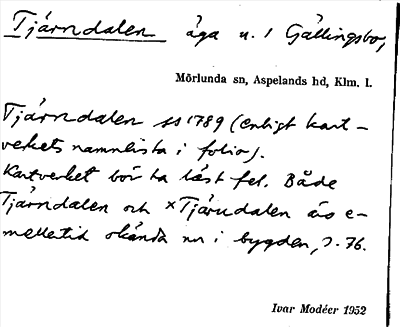 Tjärndalen äga n. 1 Gällingsbo,
Mörlunda sn, Aspelands hd, Klm. l.
Tjärndalen ss 1789 (enligt kart-
verkets namnlista i folio).
Kartverket bör ha läst fel. Både
Tjärndalen och × Tjärudalen äro e-
mellertid okända nu i bygden, J. 76.
Ivar Modéer 1952